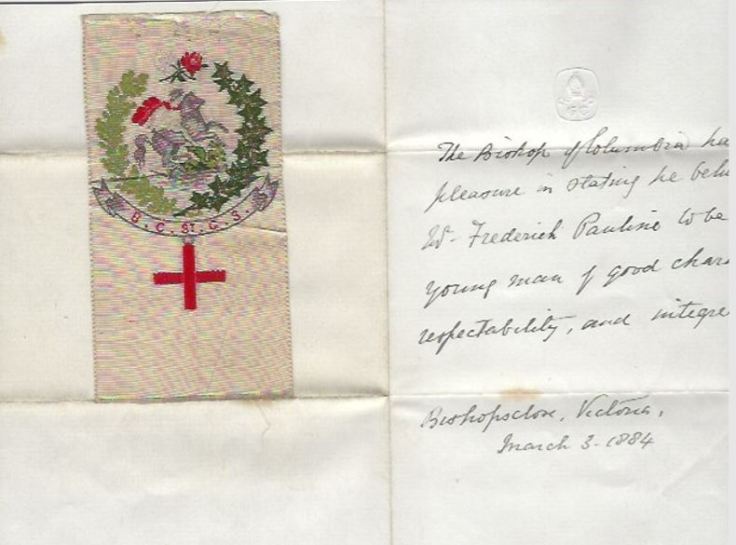 B. C. ST. G. S.
The Bishop of Columbia ha
pleasure in stating he bel
W. Frederick Pauline to be
young man of good char
respectability, and integr
Bishopsclose, Victoria,
March 3-1884